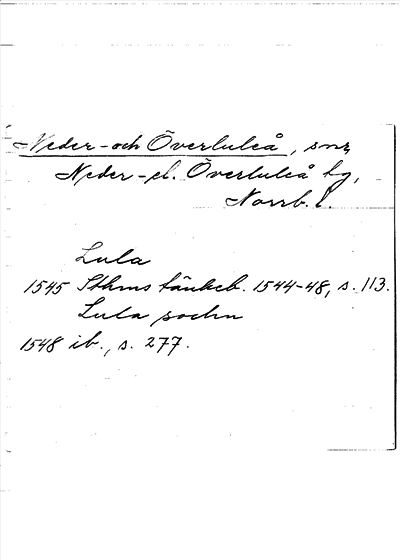 Neder- och Överluleå, snr,
Neder- el. Överluleå hg,
Norrb. l.
Lula
1545 Sthms tänkeb. 1544-48, s. 113.
Lula sochn
1548 ib., s. 277.